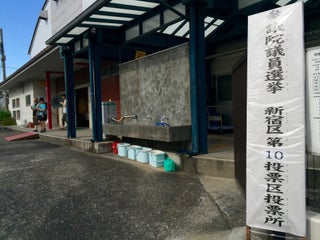 参議院議員選挙　新宿区第10投票区投票所